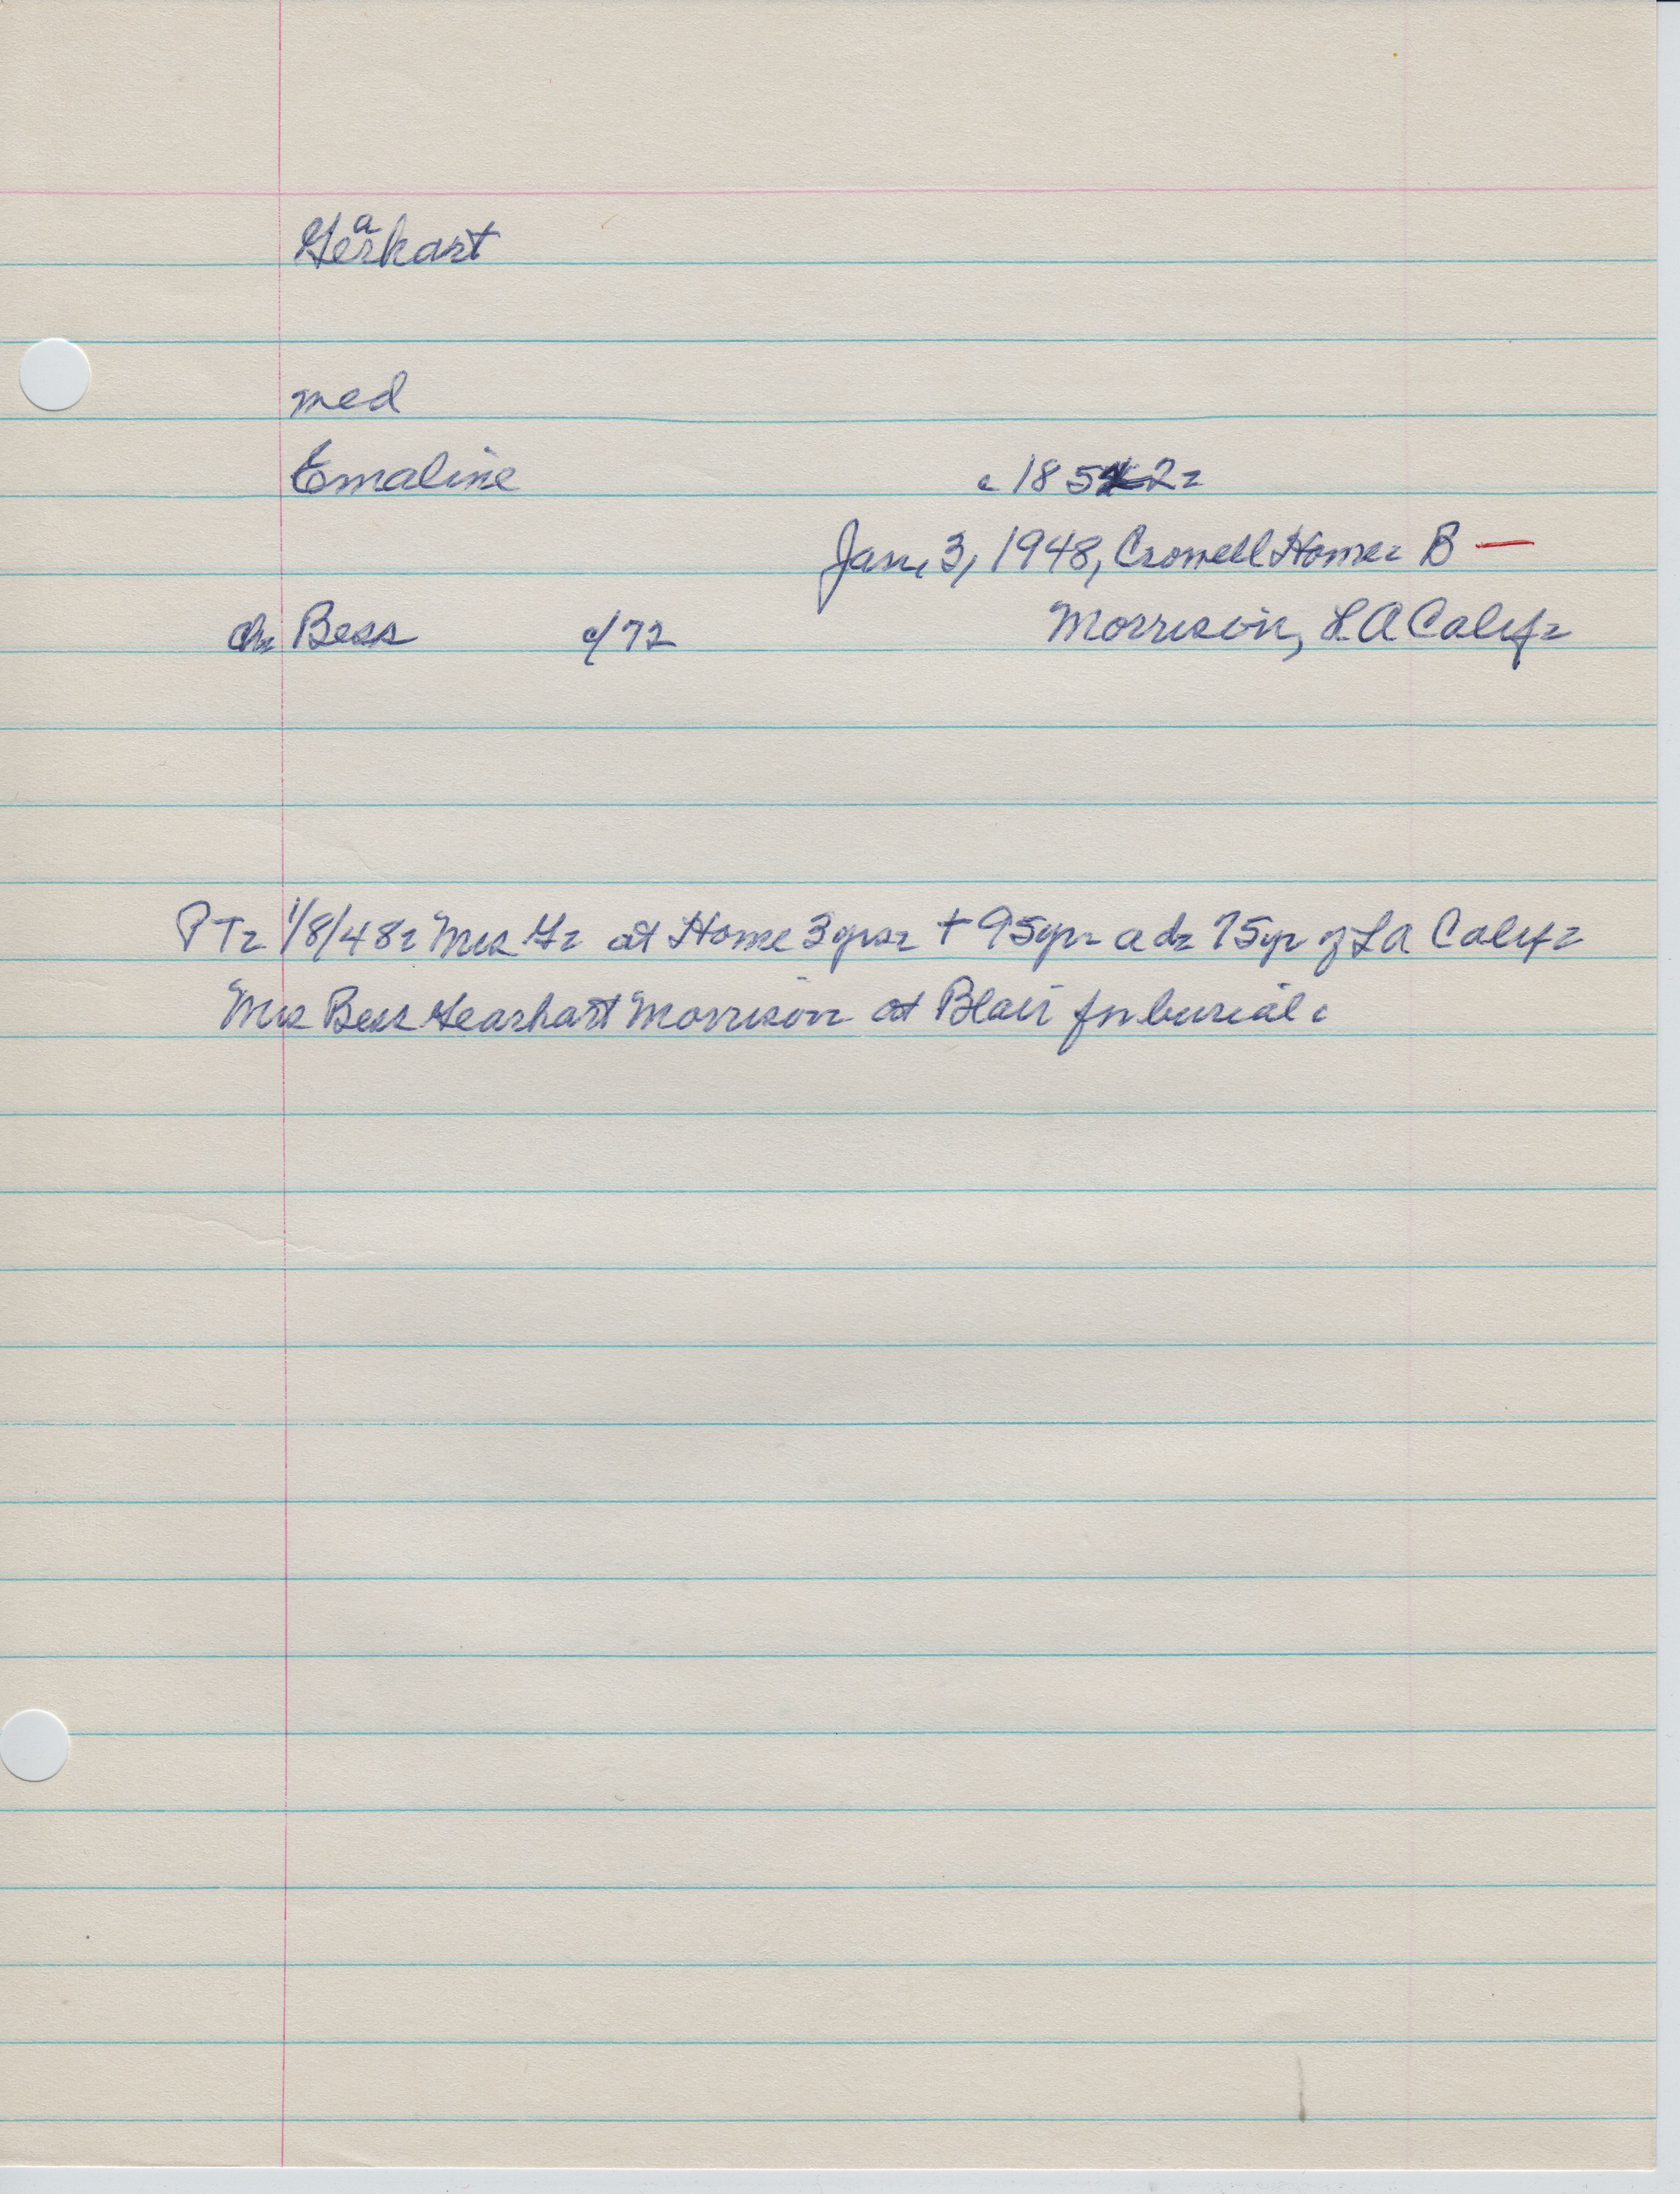 Gearhart
med
Emaline c 1852.
Jan, 3, 1948, Crowell Home. B —
ch. Bess c/72 Morrison, LA Calif.
PT. 1/8/48. Mrs G. at Home 3yrs. + 95yr. a d. 75yr of LA Calif.
Mrs Bess Gearhart Morrison at Blair for burial.